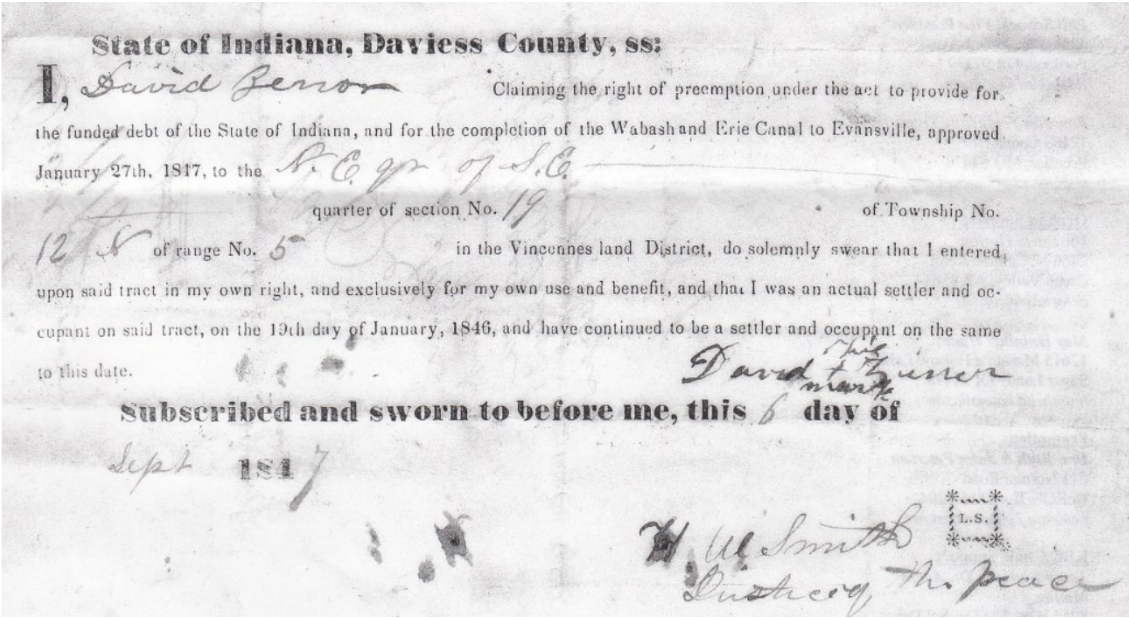 State of Indiana, Daviess County, ss:
I, David Zerror Claiming the right of preemption under the act to provide for
the funded debt of the State of Indiana, and for the completion of the Wabash and Erie Canal to Evansville, approved
January 27th, 1847, to the N. E. qr of S. E.
quarter of section No. 19 of Township No.
12 N of range No. 5 in the Vincennes land District, do solemnly swear that I entered
upon said tract in my own right, and exclusively for my own use and benefit, and that I was an actual settler and oc-
cupant on said tract, on the 19th day of January, 1846, and have continued to be a settler and occupant on the same
to this date.
his
David +
mark
Subscribed and sworn to before me, this 6 day of
Sept 1847
L.S.
H. W. Smith
Justice of the peace